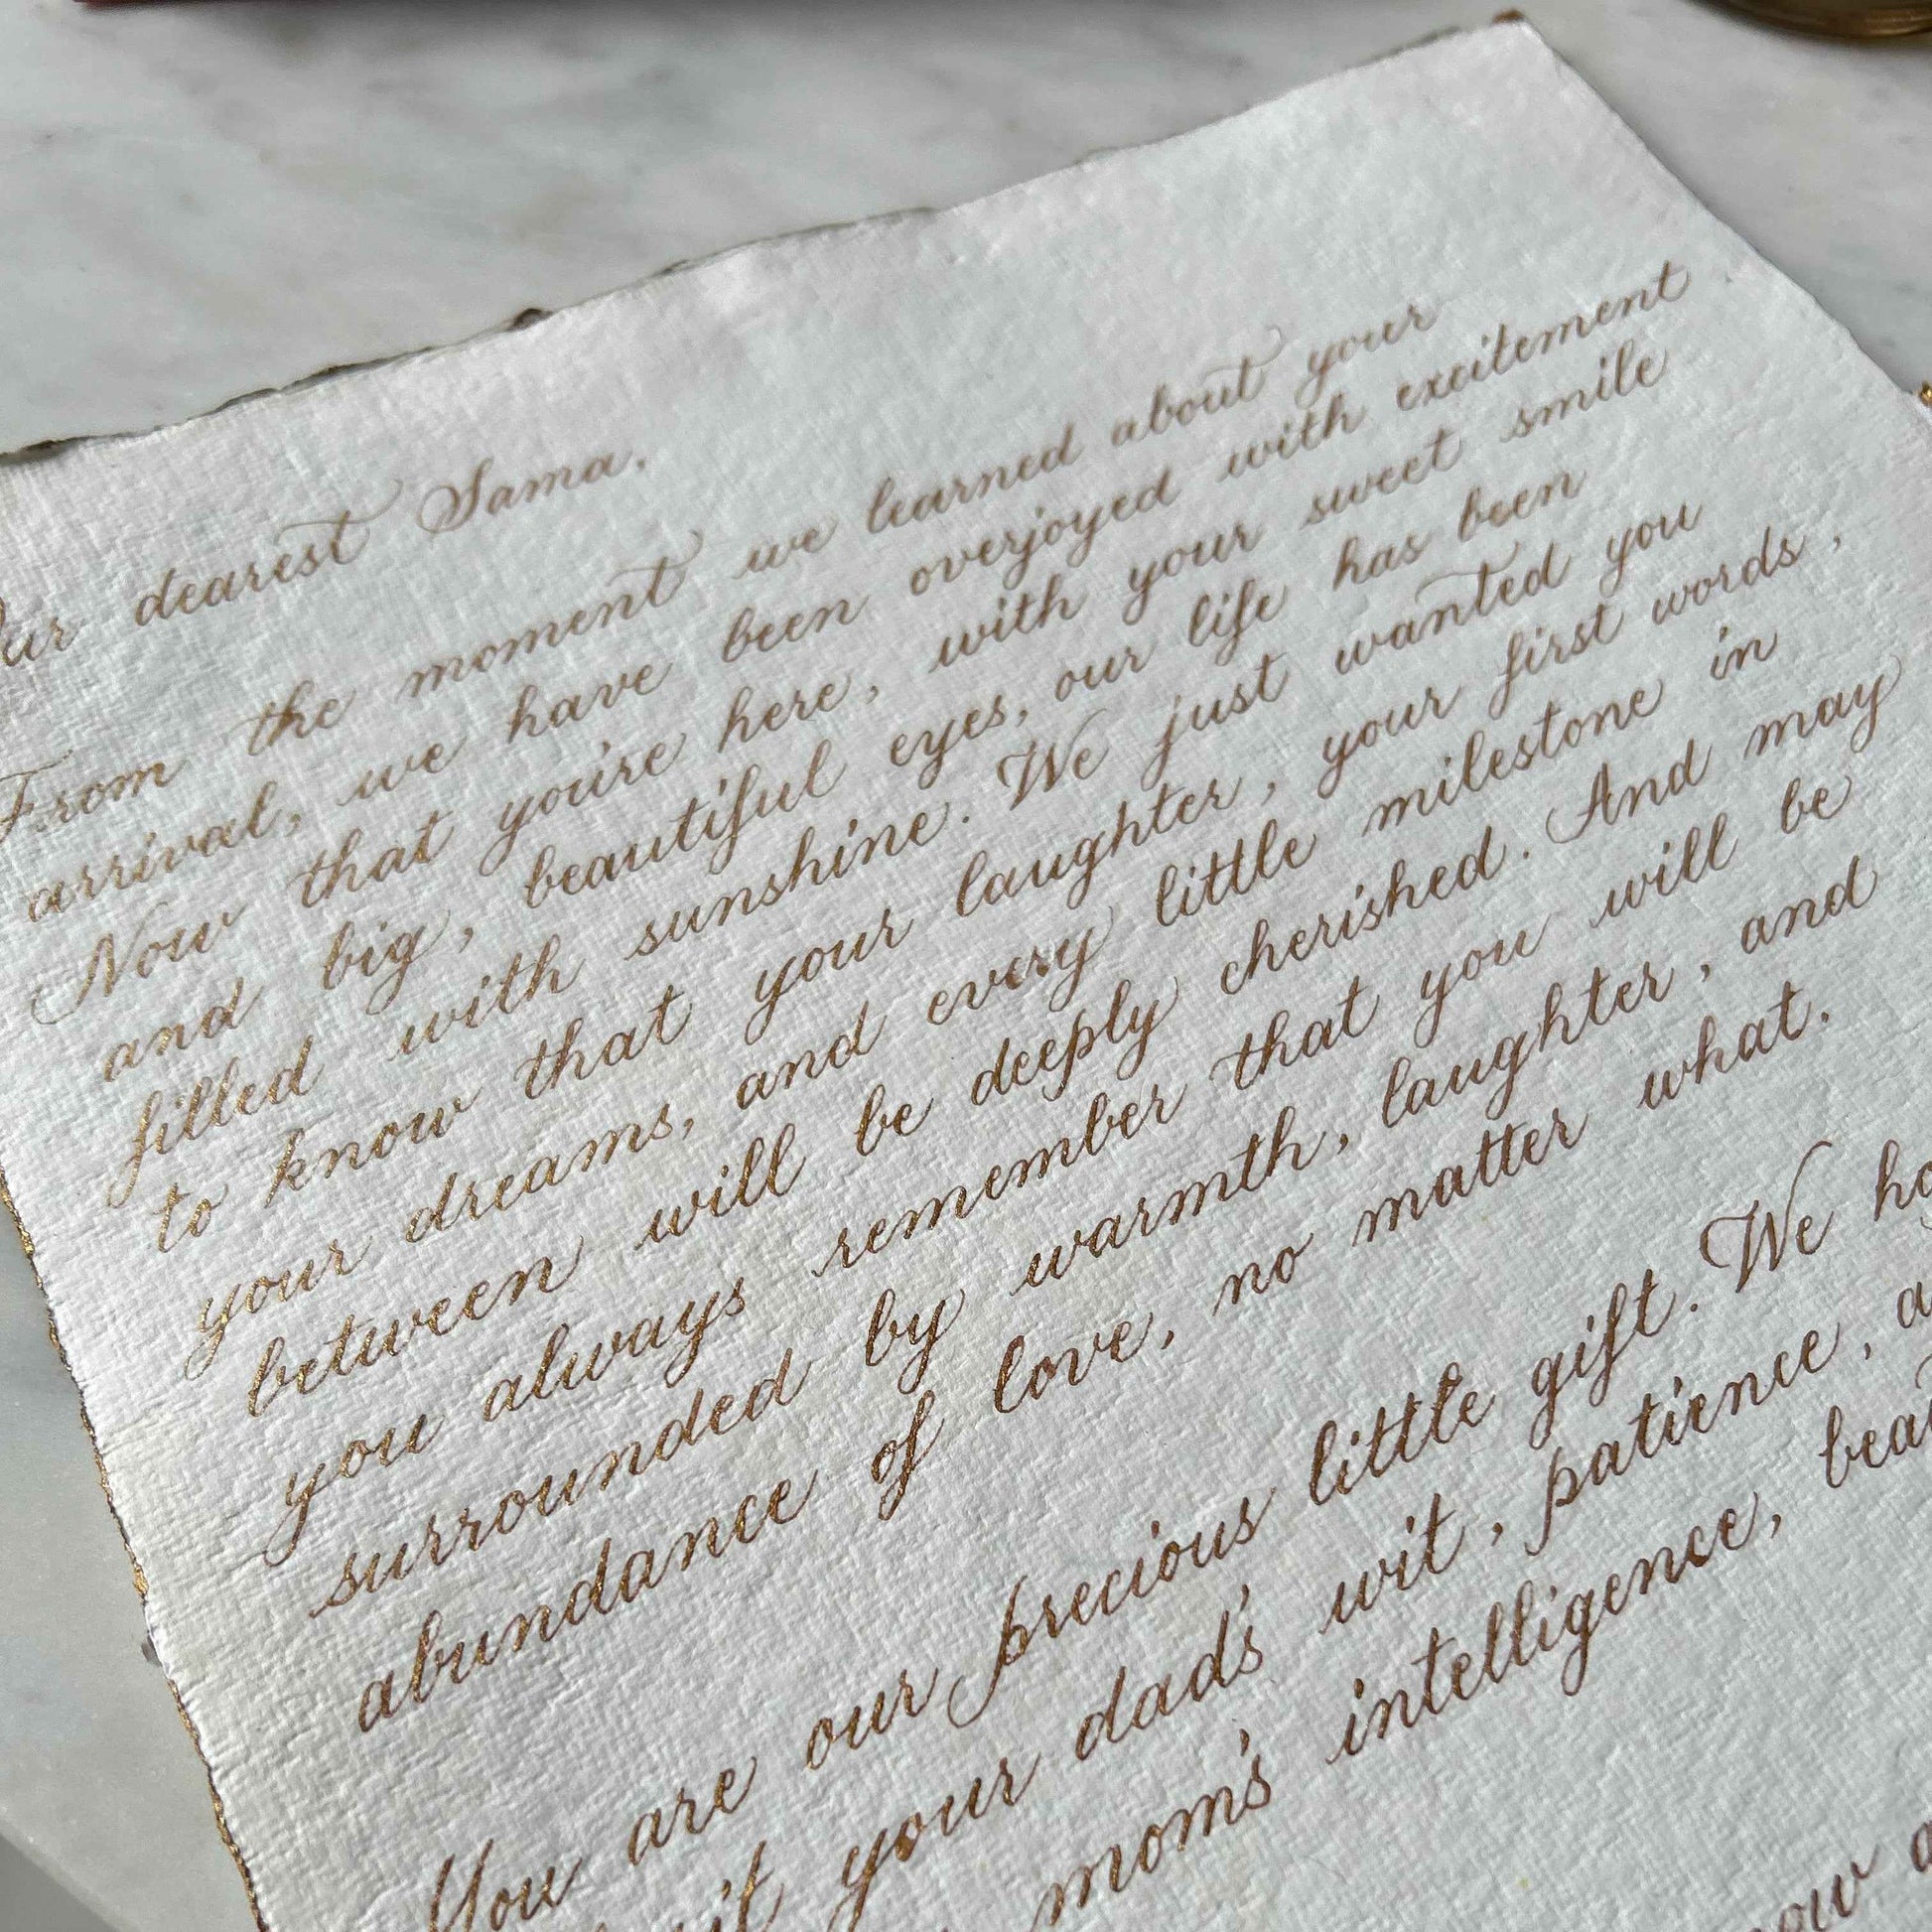 Our dearest Sama,
From the moment we learned about your
arrival, we have been overjoyed with excitement.
Now that you're here, with your sweet smile
and big, beautiful eyes, our life has been
filled with sunshine. We just wanted you
to know that your laughter, your first words,
your dreams, and every little milestone in
between will be deeply cherished. And may
you always remember that you will be
surrounded by warmth, laughter, and
abundance of love, no matter what.
You are our precious little gift. We
your dad's wit, patience,
mom's intelligence,